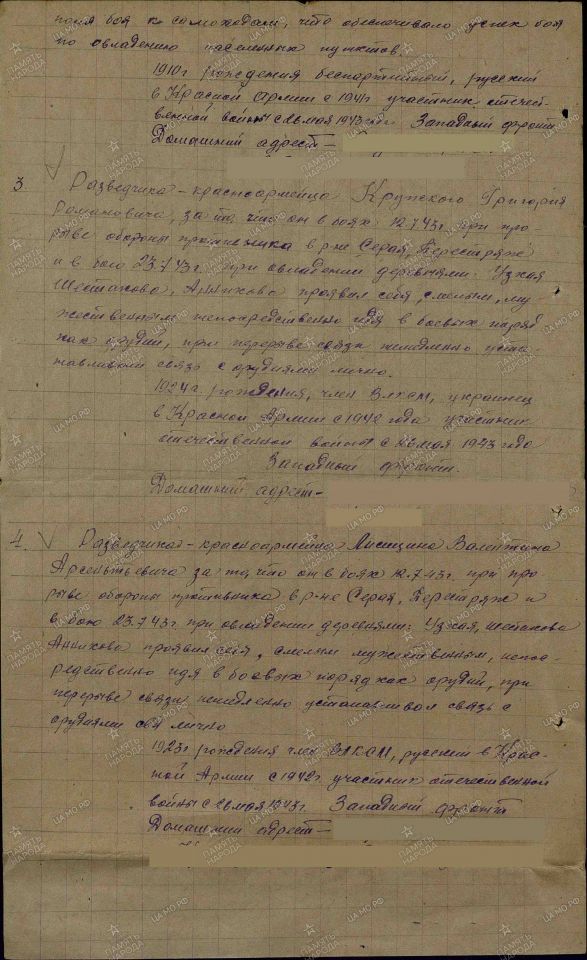 боя к самоходам, что обеспечивало успех боя
по овладению населенных пунктов.
1910г рождения беспартийный, русский
в Красной Армии с 1941г участник отечест-
венной войны с мая 1943 г. Западный фронт
Домашний адрест -
3. Разведчика - красноармейца Григория
Романовича, за то, что он в боях 12.7.43г. при про-
рыве обороны противника в р-не Серая, Перестряж
и в бою 23.7.43г. при овладении деревнями: Узкая
Шешаково, Анихово проявил себя, смелым, му-
жественным непосредственно идя в боевых поряд
ках орудий, при перерыве связи немедленно уста
навливал связь с орудиями лично.
1924г. рождения, член ВЛКСМ, украинец
в Красной Армии с 1942 года участник
отечественной войны с мая 1943 года
Западный фронт.
Домашний адрест -
4. Разведчика - красноармейца Лисицина Валентина
Арсентьевича за то, что он в боях 12.7.43г. при про
рыве обороны противника в р-не Серая, Перестряж и
в бою 23.7.43г. при овладении деревнями: Узкая, Шешаково
Анихово проявил себя, смелым мужественным, непос-
редственно идя в боевых порядках орудий, при
перерыве связи немедленно устанавливал связь с
орудиями лично
1923г. рождения член ВЛКСМ, русский в Крас-
ной Армии с 1942г. участник отечественной
войны с мая 1943г. Западный фронт
Домашний адрест -